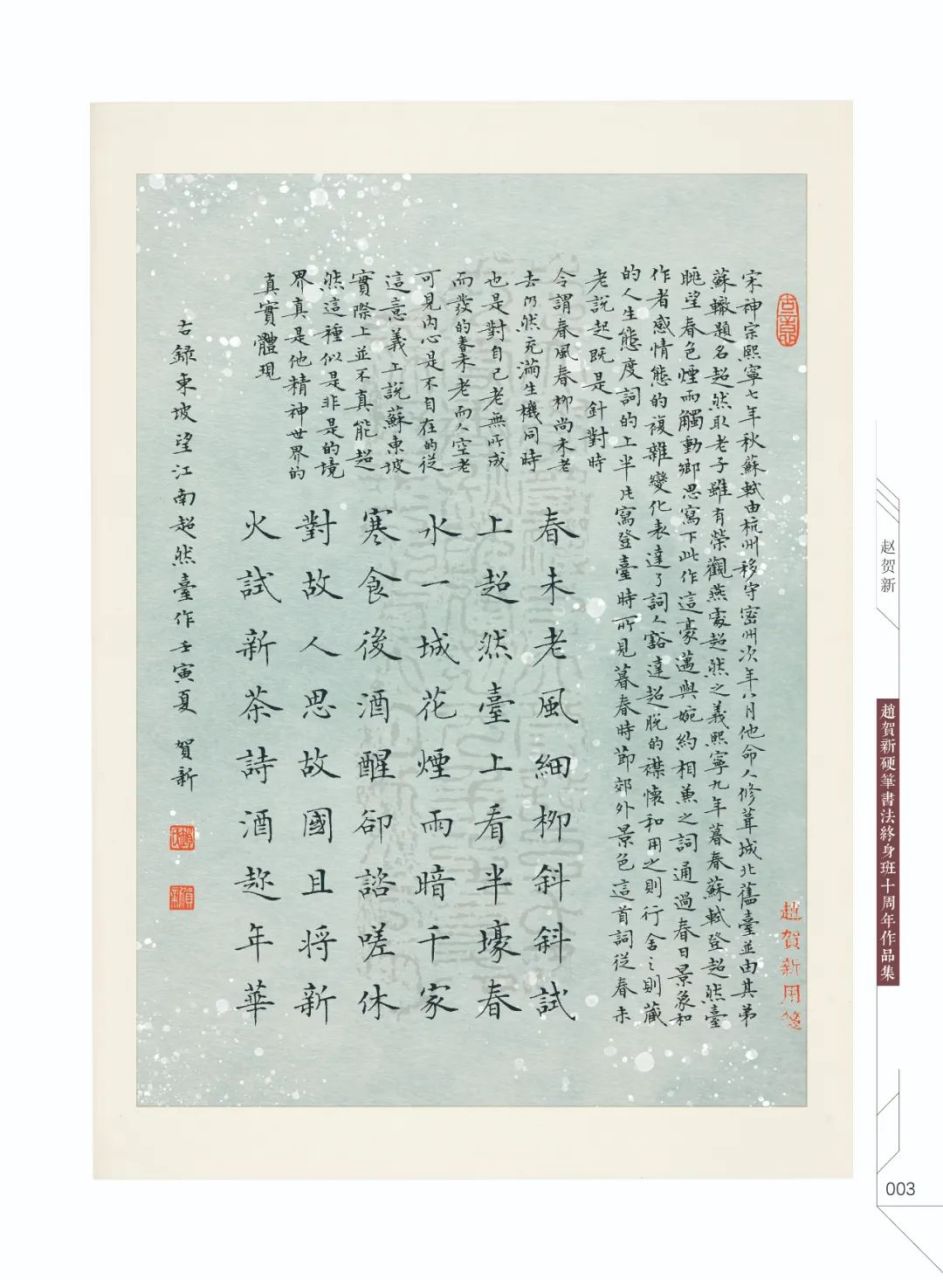 宋神宗熙寧七年秋蘇軾由杭州移守密州次年八月他命人修葺城北舊臺並由其弟
蘇轍題名超然取老子雖有榮觀燕處超然之義熙寧九年暮春蘇軾登超然臺
眺望春色煙雨觸動鄉思寫下此作這豪邁與婉約相兼之詞通過春日景象和
作者感情態的複雜變化表達了詞人豁達超脫的襟懷和用之則行舍之則藏
的人生態度詞的上半片寫登臺時所見暮春時節郊外景色這首詞從春未
老說起既是針對時
令謂春風春柳尚未老
去仍然充滿生機同時
也是對自己老無所成
而發的春未老而人空老
可見內心是不自在的從
這意義上說蘇東坡
實際上並不真能超
然這種似是非是的境
界真是他精神世界的
真實體現
春未老風細柳斜斜試
上超然臺上看半壕春
水一城花煙雨暗千家
寒食後酒醒卻諮嗟休
對故人思故國且將新
火試新茶詩酒趂年華
古錄東坡望江南超然臺作壬寅夏 賀新
趙賀新用箋
赵贺新
趙賀新硬筆書法終身班十周年作品集
003